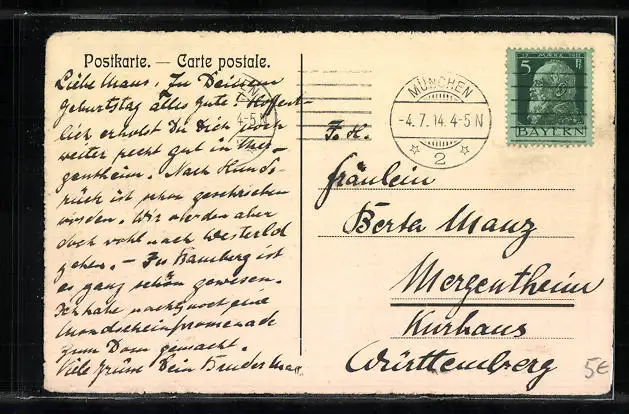 Postkarte. — Carte postale.
Liebe Maus, Zu Deinem
Geburtstag alles gute! Hoffent-
lich erholst Du Dich noch
weiter recht gut in Mer-
gentheim. Nach Hunds-
rück ist schon geschrieben
worden. Wir werden aber
doch wohl nach Westerld
gehen. – In Bamberg ist
es ganz schön gewesen.
Ich habe nachts noch eine
Mondscheinpromenade
zum Dom gemacht.
Viele Grüsse Dein Bruder Max
4-5 N
MÜNCHEN
-4.7.14. 4-5 N
2
5 Pf
BAYERN
F. H.
Fräulein
Berta Manz
Mergentheim
Kurhaus
Württemberg
5€